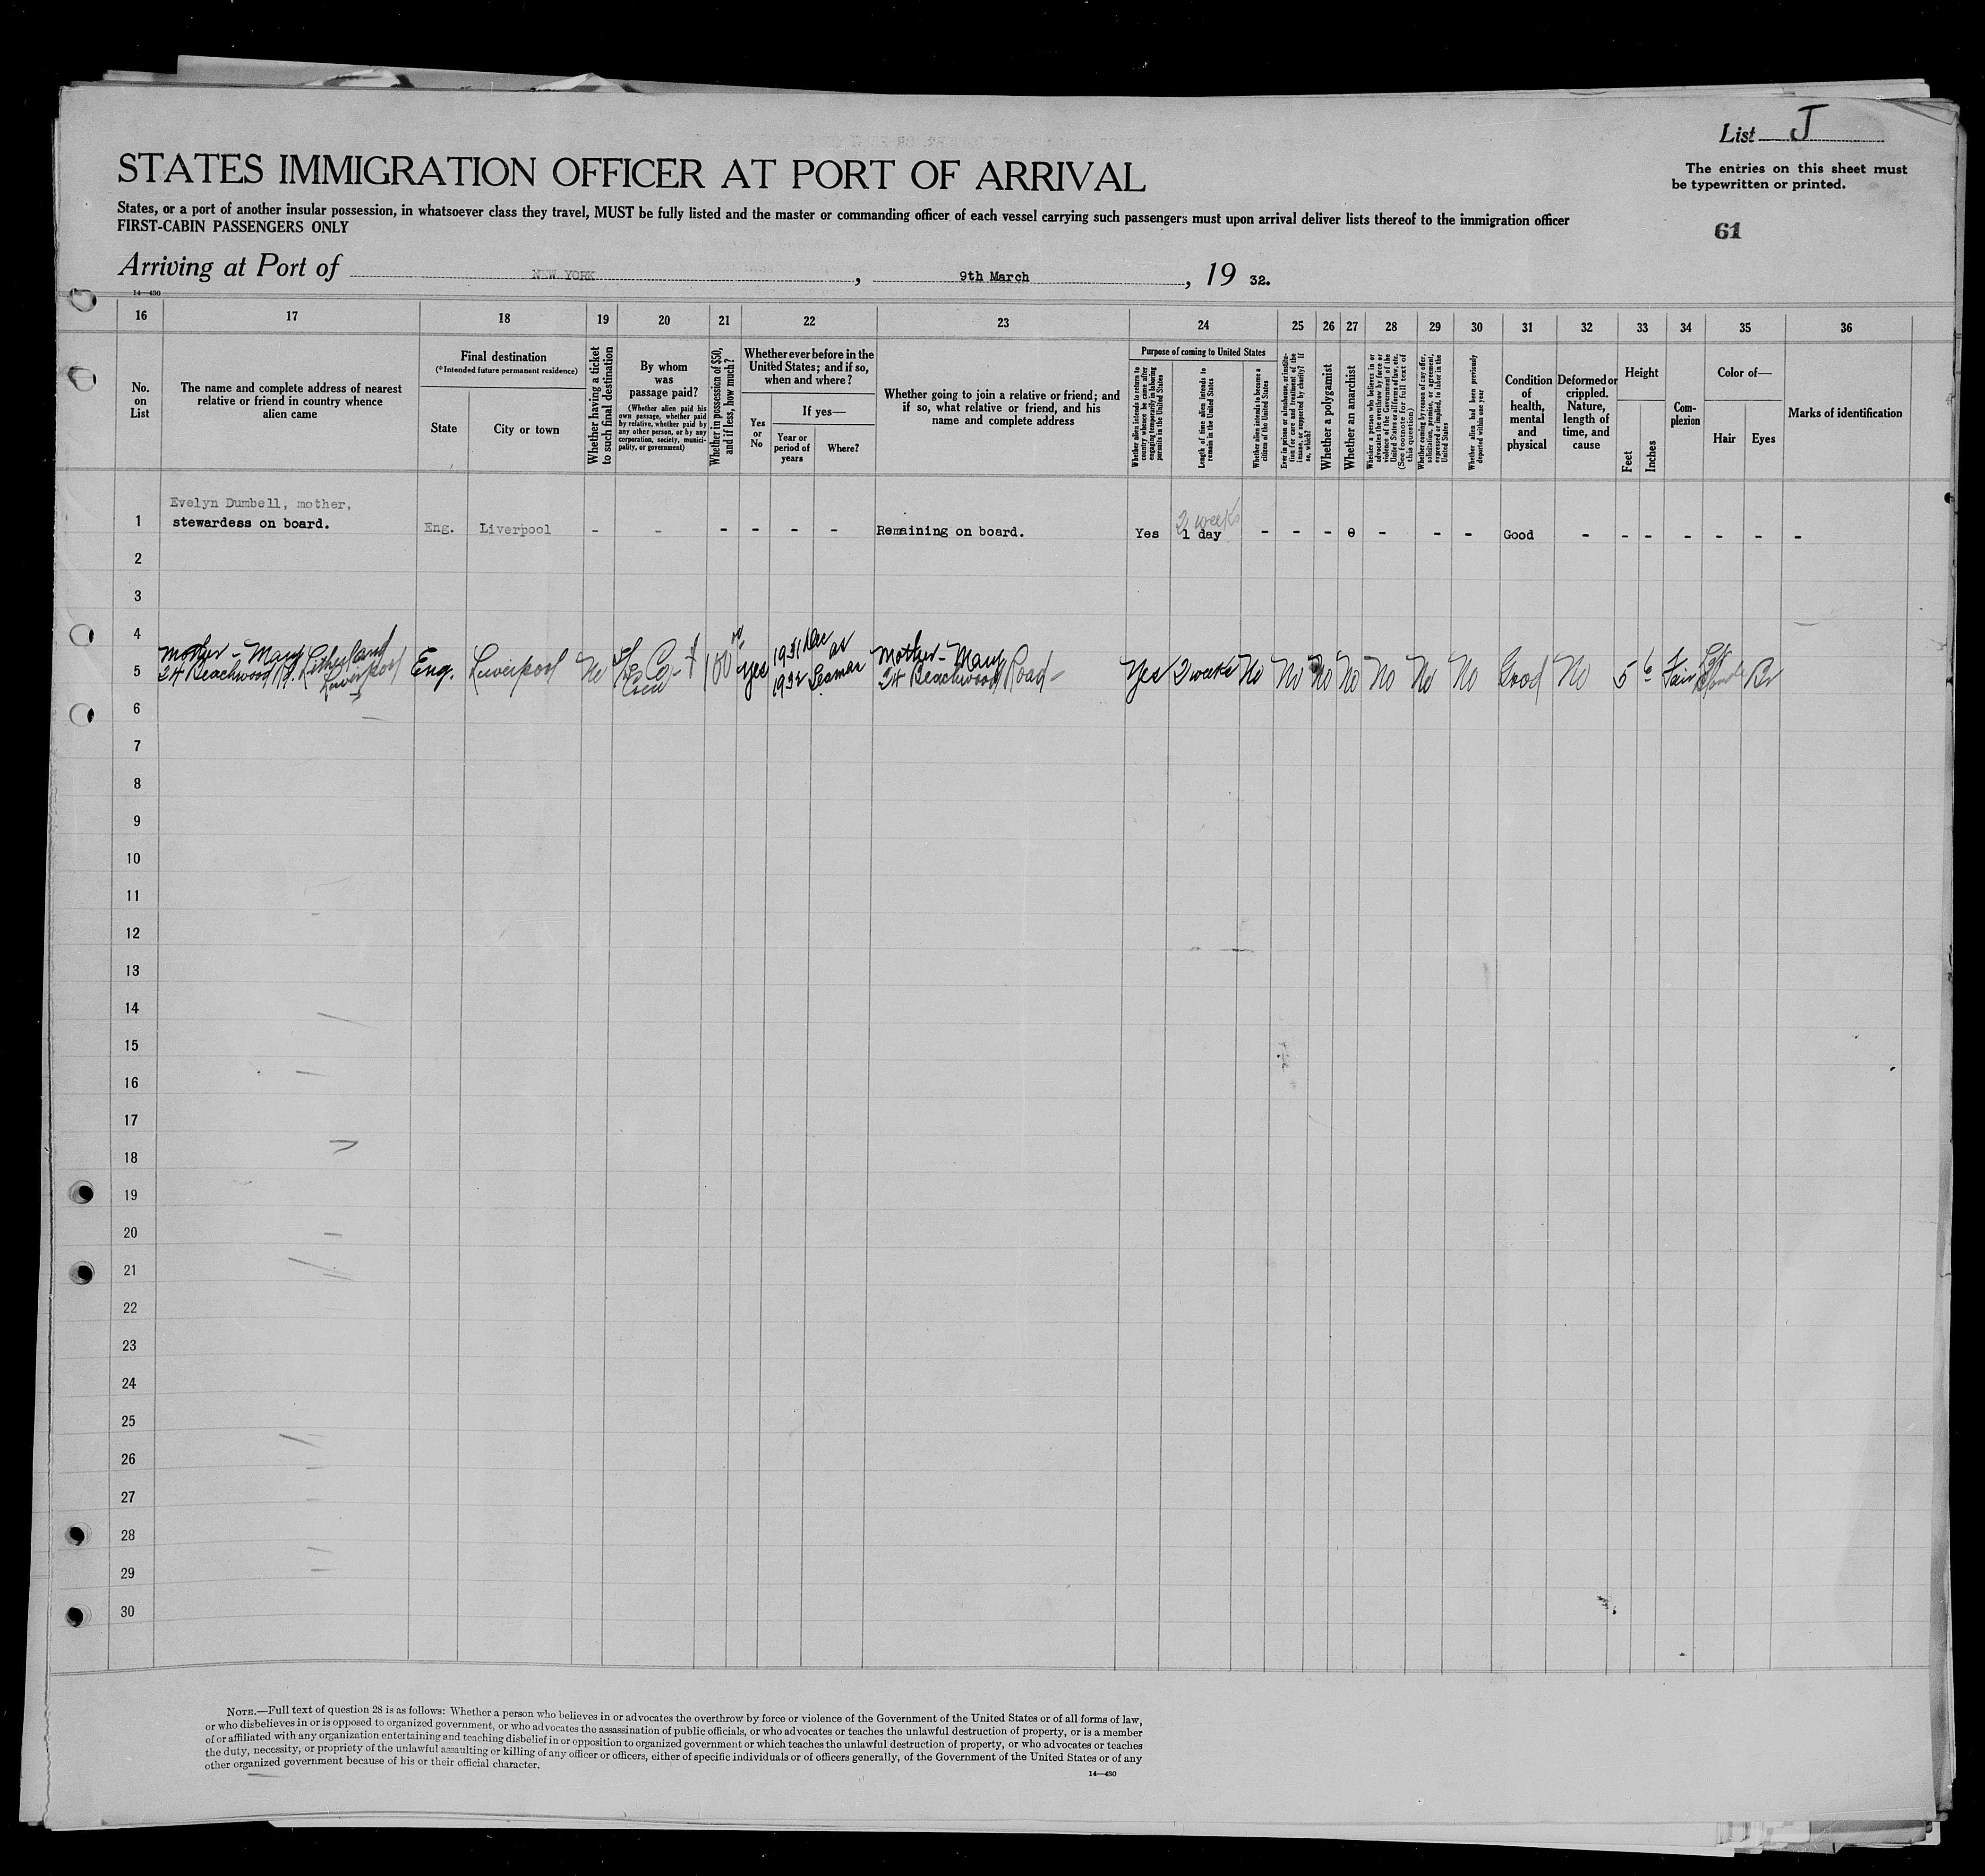 List J
STATES IMMIGRATION OFFICER AT PORT OF ARRIVAL
The entries on this sheet must
be typewritten or printed.
States, or a port of another insular possession, in whatsoever class they travel, MUST be fully listed and the master or commanding officer of each vessel carrying such passengers must upon arrival deliver lists thereof to the immigration officer
FIRST-CABIN PASSENGERS ONLY
61
Arriving at Port of NEW YORK, 9th March, 19 32.
14—430
16 17 18 19 20 21 22 23 24 25 26 27 28 29 30 31 32 33 34 35 36
No.
on
List
The name and complete address of nearest
relative or friend in country whence
alien came
Final destination
(*Intended future permanent residence)
State
City or town
Whether having a ticket
to such final destination
By whom
was
passage paid?
(Whether alien paid his
own passage, whether paid
by relative, whether paid by
any other person, or by any
corporation, society, munici-
pality, or government)
Whether in possession of $50,
and if less, how much?
Whether ever before in the
United States; and if so,
when and where?
Yes
or
No
If yes—
Year or
period of
years
Where?
Whether going to join a relative or friend; and
if so, what relative or friend, and his
name and complete address
Purpose of coming to United States
Whether alien intends to return to
country whence he came after
engaging temporarily in laboring
pursuits in the United States
Length of time alien intends to
remain in the United States
Whether alien intends to become a
citizen of the United States
Ever in prison or almshouse, or institu-
tion for care and treatment of the
insane, or supported by charity? If
so, which?
Whether a polygamist
Whether an anarchist
Whether a person who believes in or
advocates the overthrow by force or
violence of the Government of the
United States or all forms of law, etc.
(See footnote for full text of
this question)
Whether coming by reason of any offer,
solicitation, promise, or agreement,
expressed or implied, to labor in the
United States
Whether alien had been previously
deported within one year
Condition
of
health,
mental
and
physical
Deformed or
crippled.
Nature,
length of
time, and
cause
Height
Feet
Inches
Com-
plexion
Color of—
Hair
Eyes
Marks of identification
Evelyn Dumbell, mother,
2 weeks
1 stewardess on board. Eng. Liverpool - - - - - - Remaining on board. Yes 1 day - - - 0 - - - Good - - - - - - -
2
3
4
mother - Mary Litherland 1931 Dec as Mother - Mary
5 24 Beachwood Rd. Liverpool Eng. Liverpool No Co - $100 00 Yes 1932 Seaman 24 Beachwood Road - Yes 2 weeks No No No No No No No Good No 5 6 Fair Blonde Br
6
7
8
9
10
11
12
13
14
15
16
17
18
19
20
21
22
23
24
25
26
27
28
29
30
NOTE.—Full text of question 28 is as follows: Whether a person who believes in or advocates the overthrow by force or violence of the Government of the United States or of all forms of law,
or who disbelieves in or is opposed to organized government, or who advocates the assassination of public officials, or who advocates or teaches the unlawful destruction of property, or is a member
of or affiliated with any organization entertaining and teaching disbelief in or opposition to organized government or which teaches the unlawful destruction of property, or who advocates or teaches
the duty, necessity, or propriety of the unlawful assaulting or killing of any officer or officers, either of specific individuals or of officers generally, of the Government of the United States or of any
other organized government because of his or their official character.
14—430